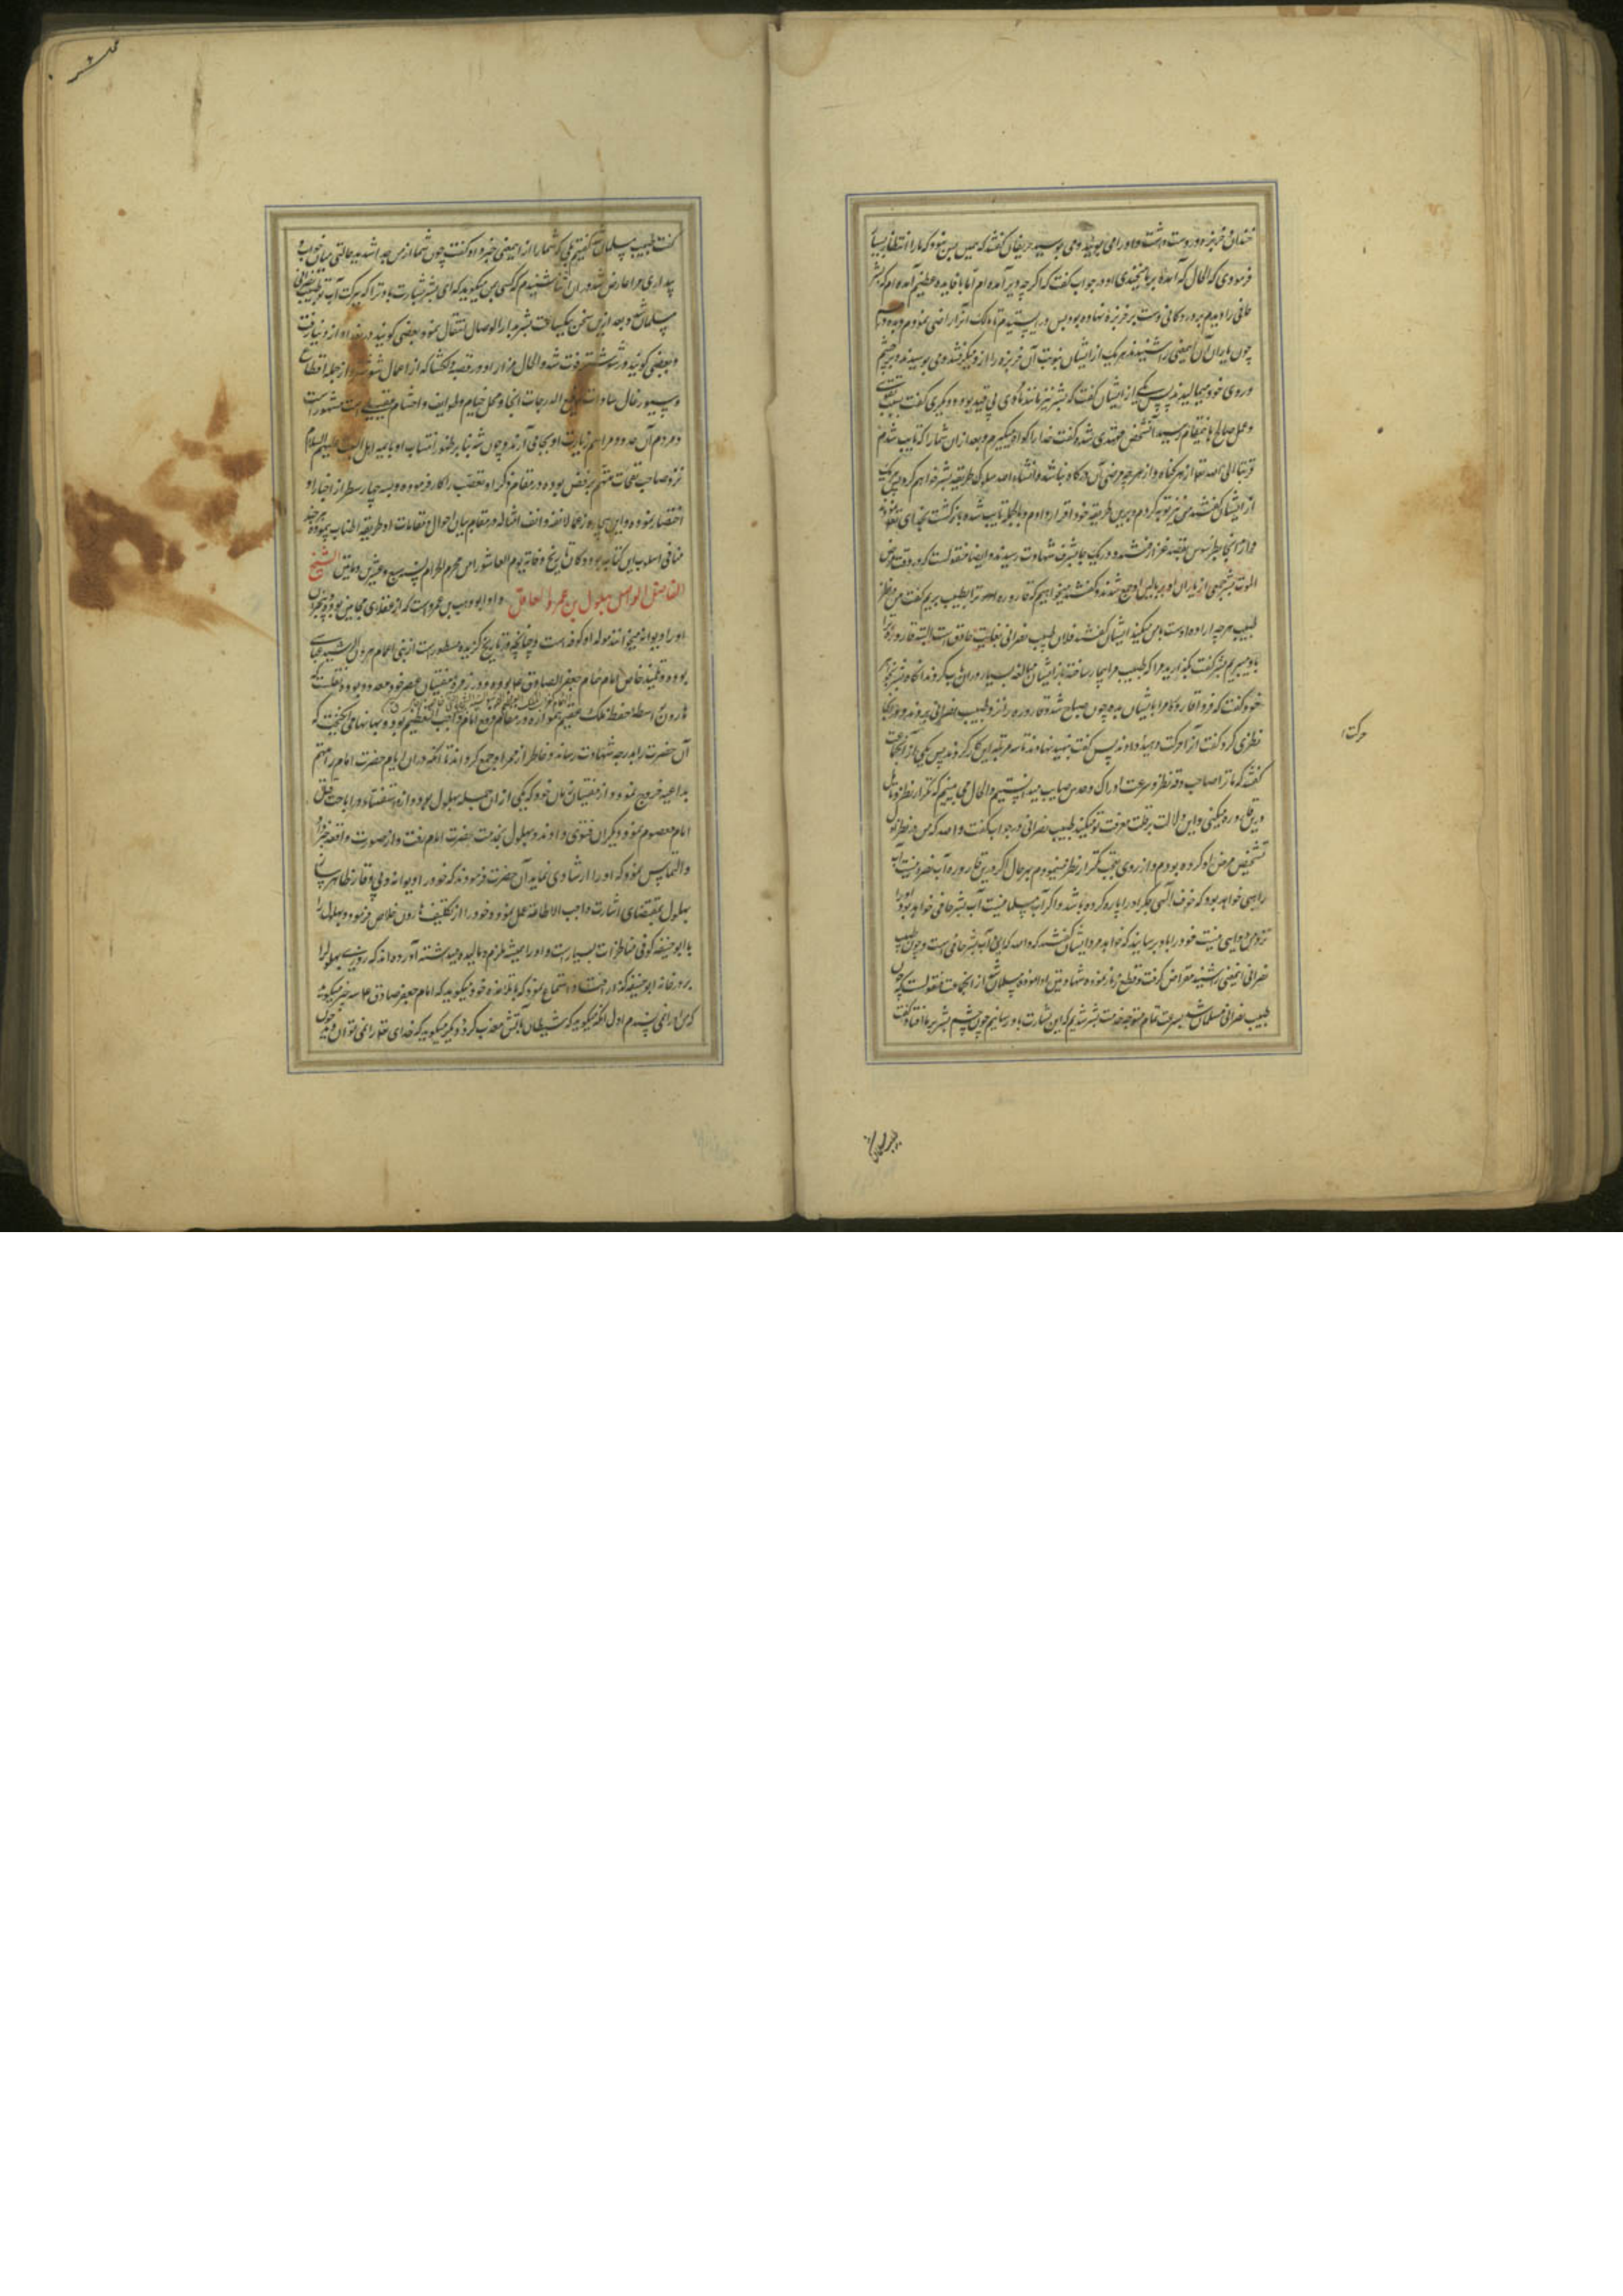 خندان خربزه در دست داشت و او را می بویید و می بوسید حریفان گفتند که همین بس نبود که ما را انتظار بسیار
فرمودی که الحال که آمده بر ما میخندی او در جواب گفت که اگر چه دیر آمده ام اما با فایده عظیم آمده ام که بشر
حافی را دیدم بر در دکانی دست بر خربزه نهاده بود پس در ایستیدم تا مالک آنرا راضی نمودم و به ده درهم
چون یاران آن معنی را شنیدند هر یک از ایشان بنوبت آن خربزه را ازو میگرفتند و می بوسیدند و بر چشم
و روی خود میمالیدند پس یکی از ایشان گفت که بشر نیز مانند ما می بی قید بوده و دیگری گفت بسبب تقوی
و عمل صالح باین مقام رسید آنشخص مهتدی شده گفت خدا را گواه میگیرم و بعد ازان شما را که تایب شدم
قربتا الی الله تعالی از هر گناه و از هر چه مرضی آن درگاه نباشد و انشاء الله سلوک طریقه بشر خواهم کرد پس هر یک
از ایشان گفتند من نیز توبه کردم و برین طریقه خود اقرار دادم و بالجمله تایب شده بازگشت بخدای تعالی نمودند
و از آنجا بطرسوس بقصد غزا رفتند و در یک جا بشرف شهادت رسیدند و ایضا منقولست که در وقت مرض
الموت بشر جمعی از یاران او بر بالین او جمع شدند و گفتند میخواهیم که قاروره ترا بطبیب بریم گفت من در نظر
طبیبم هر چه اراده اوست با من میکند ایشان گفتند فلان طبیب نصرانی بغایت حاذق است البته قاروره ترا
باو میبریم بشر گفت بگذارید مرا که طبیب مرا بیمار ساخته باز ایشان مبالغه بسیار دران باب کردند آنگاه بشر بخواهر
خود گفت که فردا قاروره مرا بایشان بده چون صباح شد قاروره را نزد طبیب نصرانی بردند و چون آنجا
نظری کرد گفت آنرا حرکت دهید دادند پس گفت بنهید نهادند تا سه مرتبه این کار کردند پس یکی از آن جماعت
گفتند که ما ترا صاحب دقت نظر و سرعت ادراک و حدس صایب میدانستیم و الحال می بینیم که تکرار نظر و تامل
درین قاروره میکنی و این دلالت بر قلت معرفت تو میکند طبیب نصرانی در جواب گفت والله که من در نظر اول
تشخیص مرض او کرده بودم و از روی تعجب تکرار نظر مینمودم بهر حال اگر درین قاروره آب نصرانیست آب
راهبی خواهد بود که خوف الهی جگر او را پاره کرده باشد و اگر آب مسلمانیست آب بشر حافی خواهد بود او را
نزد من دوایی نیست خود را باو برسانید که خواهد مرد ایشان گفتند که والله که این آب بشر حافی است و چون طبیب
نصرانی این معنی را شنید مقراض گرفت و قطع زنار نموده شهادتین ادا نموده مسلمان شد از آن جماعت منقولست که چون
طبیب نصرانی مسلمان شد بسرعت تمام متوجه خدمت بشر شدیم که این بشارت باو رسانیم چون چشم بشر بر ما افتاد گفت
حرکت
گفت طبیب مسلمان شد گفتیم بلی که شما را از این معنی خبر داد گفت چون شما از من جدا شدید حالتی میان خواب و
بیداری مرا عارض شد در آن اثنا شنیدم که کسی بمن میگوید که ای بشر بشارت باد ترا که ببرکت آب تو طبیب نصرانی
مسلمان شد و بعد ازین سخن بیکساعت بشر بدار الوصال انتقال نمود و بعضی گویند در بغداد از دنیا رفت
و بعضی گویند در شوشتر فوت شد و الحال مزار او در قصبه دلگشا که از اعمال شوشتر و از جمله اقطاع
و سیورغال سادات رفیع الدرجات آنجا و محل خیام و طوایف و احشام مقبلی است مشهور است
و مردم آن حدود مراسم زیارت او بجا می آرند و چون شهرت بنا بر ظهور انتساب او بائمه اهل البیت علیهم السلام
نزد صاحب نفحات متهم برفض بوده در مقام ذکر او تعصب را کار فرموده و بسه چهار سطر از اخبار او
اختصار نموده و این بیچاره رغما لانفه و انف امثاله در مقام بیان احوال و مقامات او طریقه اطناب پیموده هر چند
منافی اسلوب این کتاب بود و کان تاریخ وفاته یوم العاشورا من محرم الحرام سنه سبع و عشرین و مایتین الشیخ
الفاضل الواصل بهلول بن عمرو العاقل و او ابو وهیب بن عمرو است که از عقلای مجانین بود و بتجرد
او را دیوانه میخوانند مولد او کوفه است و چنانچه در تاریخ گزیده مسطور است از بنی اعمام هرون الرشید عباسی
بوده و تلمیذ خاص امام همام جعفر الصادق علیه السلام بوده و در زمره مفتیان عصر خود معدود بوده نقلست که
هارون بواسطه حفظ ملک عقیم همواره در مقام دفع امام واجب التعظیم بود و بهانها می انگیخت که
آن حضرت را بدرجه شهادت رساند و خاطر از ممر او جمع گرداند تا آنکه دران ایام حضرت امام را متهم
بداعیه خروج نمود و از مفتیان زمان خود که یکی از ان جمله بهلول بود و از او استفتاء در اباحت قتل
امام معصوم نمود دیگران فتوی دادند و بهلول بخدمت حضرت امام رفت و از صورت واقعه خبر داد
و التماس نمود که او را ارشادی نماید آن حضرت فرمودند که خود را دیوانه و بی وقار ظاهر ساز
بهلول بمقتضای اشارت واجب الاطاعه عمل نموده خود را از تکلیف هارون خلاص فرمود و بهلول را
با ابو حنیفه کوفی مناظرات بسیار است و او را همیشه ملزم و مالیده میداشته آورده اند که روزی بهلول را
بر در خانه ابو حنیفه گذر افتاد و استماع نمود که با تلامذه خود میگوید که امام جعفر صادق علیه السلام سه چیز میگوید
که من آنرا نمی پسندم اول آنکه میگوید که شیطان بآتش معذب گردد و دیگر میگوید که خدای تعالی را نمی توان دید چون